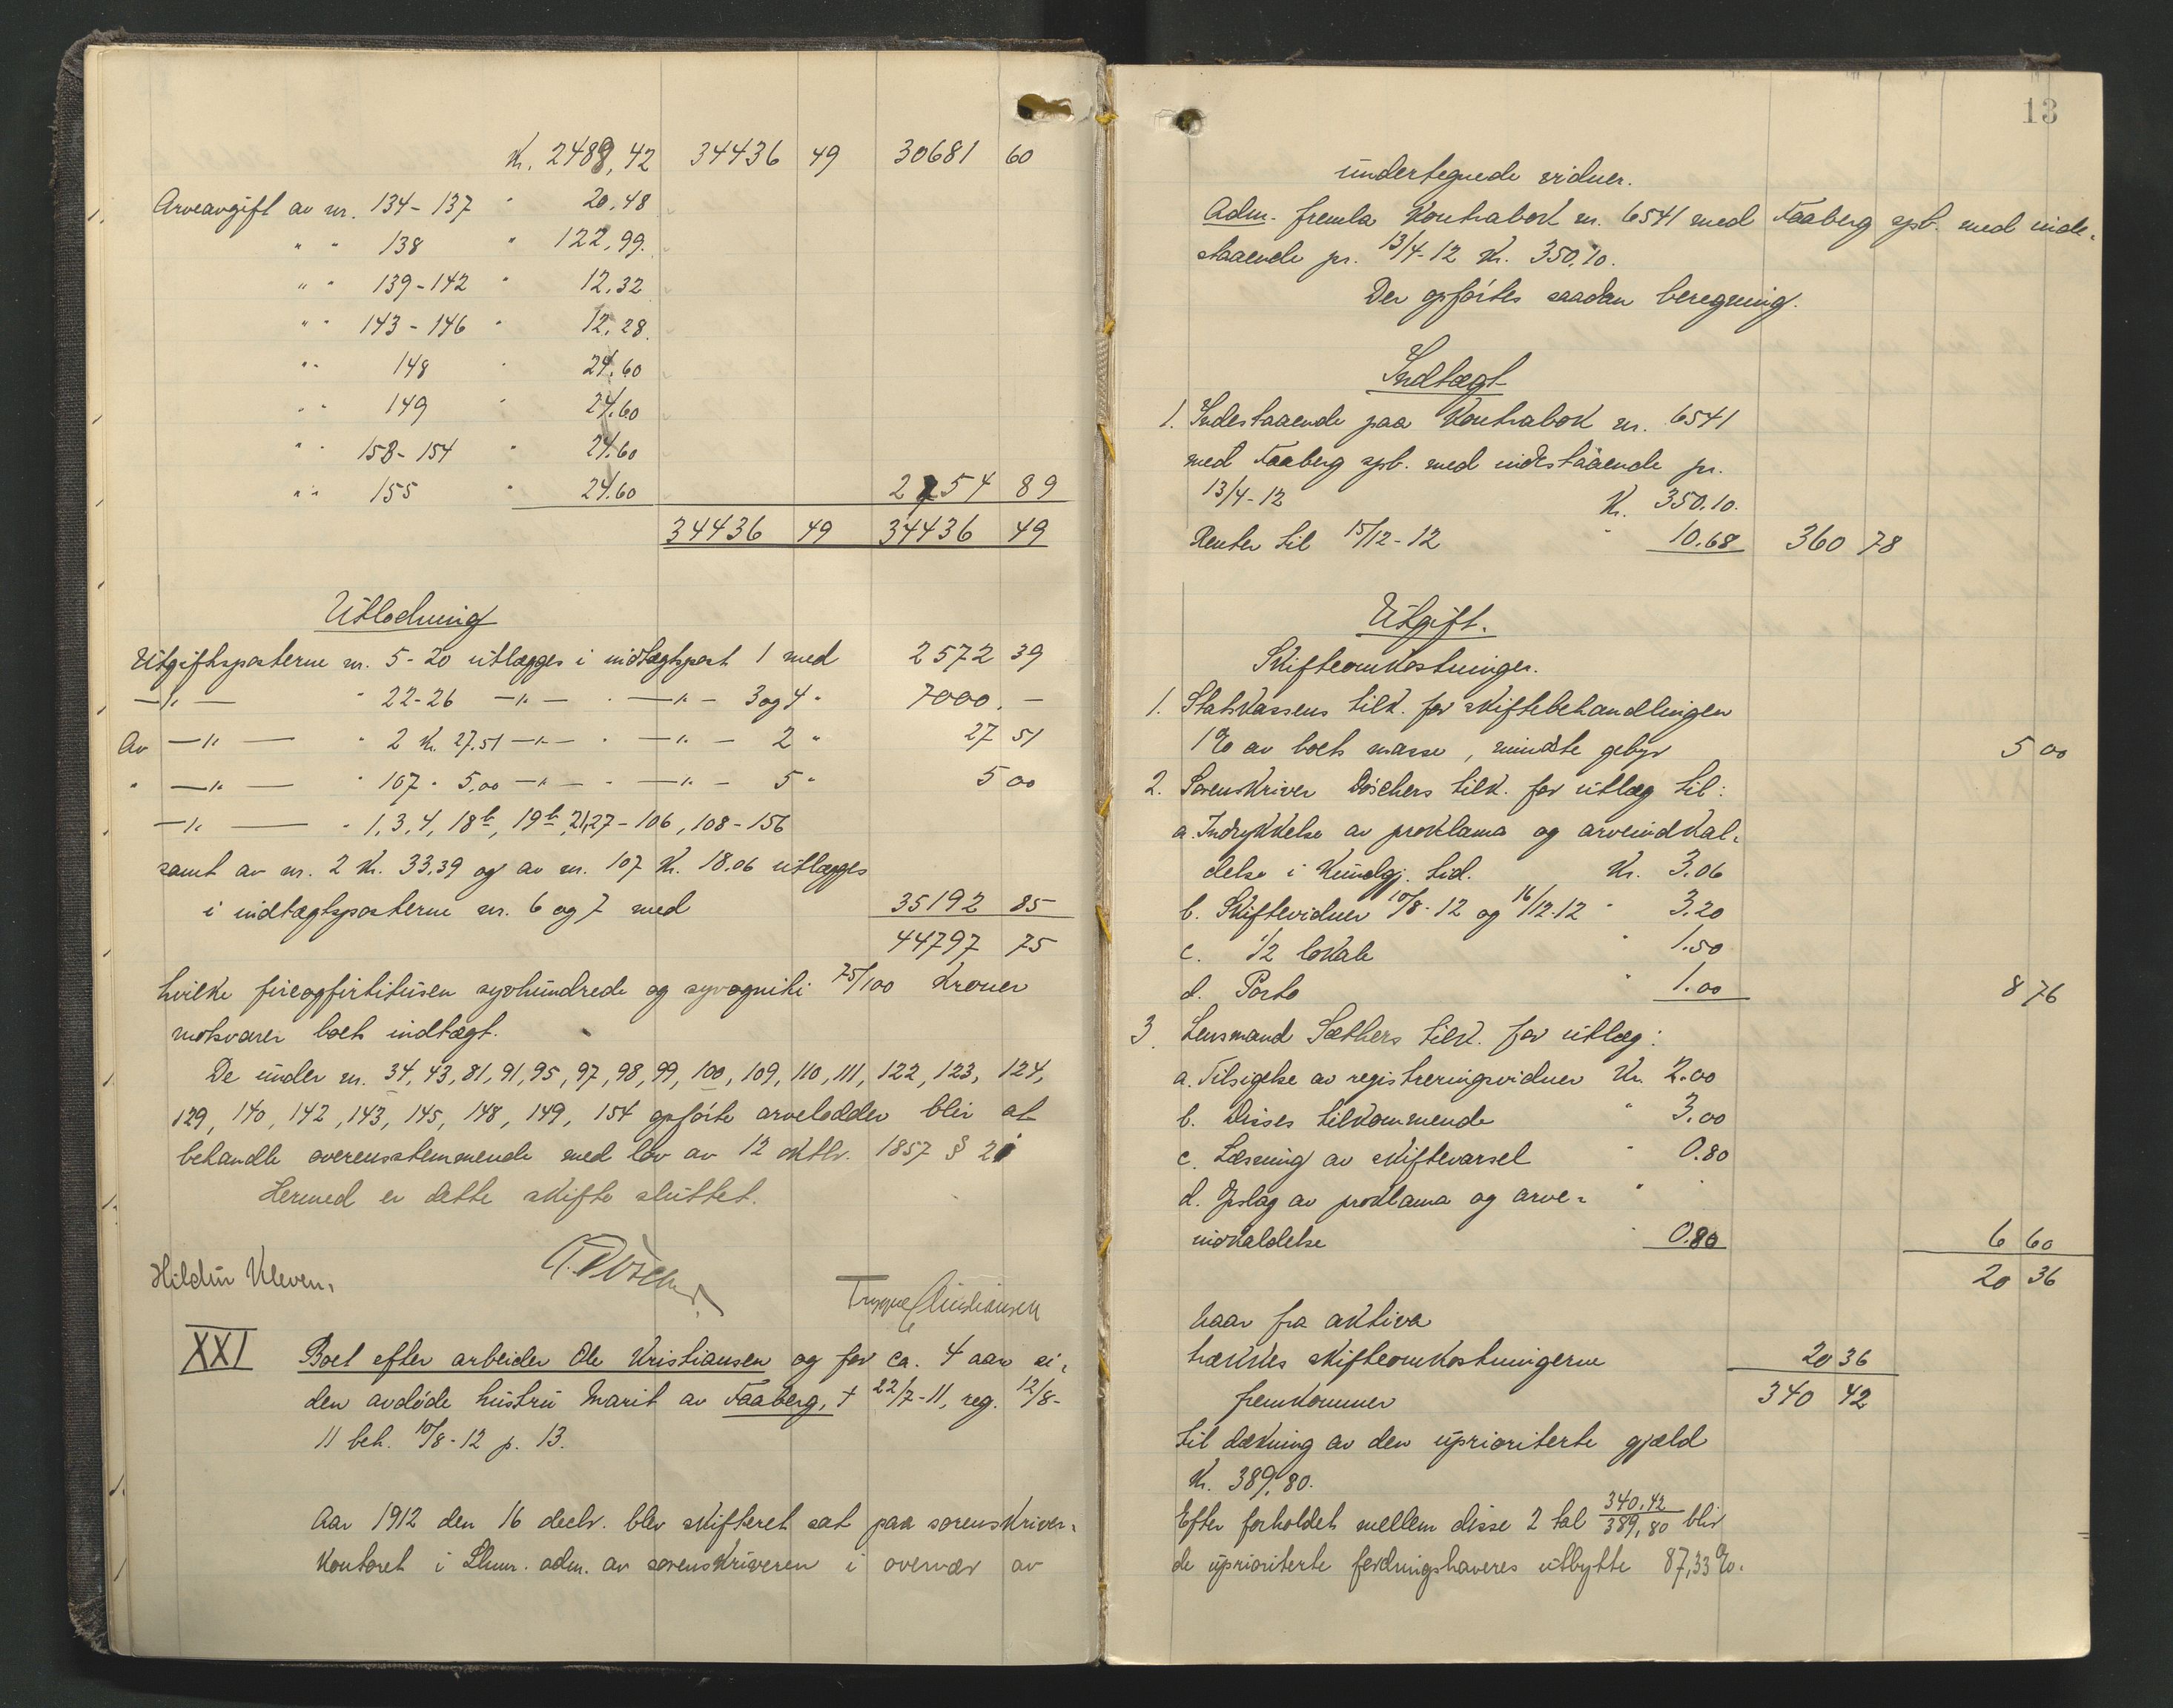 Kr. 2488,42 34436 49 30681 60
1. Arveavgift av nr. 134-137 " 20,48
" " 138 " 122,99.
" " 139-142 " 12,32
" " 143-146 " 12,28.
" " 148 " 24,60
" " 149 " 24,60
" " 153-154 " 24,60
" " 155 " 24,60 2754 89
34436 49 34436 49
Utlodning
Utgiftsposterne nr. 5-20 utlægges i indtægtspost 1 med 2572 39
—"— " 22-26 —"— " —"— 3 og 4 " 7000. —
Av —"— " 2 Kr. 27.51 —"— " —"— 2 " 27 51
" —"— " 107 " 5,00 —"— " —"— 5 " 5 00
—"— " 1, 3, 4, 18b, 19b, 21, 27-106, 108-156
samt av nr. 2 Kr. 33,39 og av nr. 107 Kr. 18.06 utlægges
i indtægtsposterne nr. 6 og 7 med 35192 85
44797 75
hvilke fireogfirtitusen syvhundrede og syvogniti 75/100 kroner
motsvarer boets indtægt.
De under nr. 34, 43, 81, 91, 95, 97, 98, 99, 100, 109, 110, 111, 122, 123, 124,
129, 140, 142, 143, 145, 148, 149, 154 opførte arvelodder blir at
behandle overensstemmende med lov av 12 oktbr. 1857 § 2
Hermed er dette skifte sluttet.
Hildur Kleven. Trygve Christiansen
XXI Boet efter arbeider Ole Kristiansen og for ca. 4 aar si-
den avdøde hustru Marit av Faaberg, † 22/7-11, reg. 12/8-
11 beh. 10/8-12 p. 13.
Aar 1912 den 16 decbr. blev skifteret sat paa sorenskriver-
kontoret i Lhmr. adm. av sorenskriveren i overvær av
13
undertegnede vidner.
Adm. fremla kontrabok nr. 6541 med Faaberg spb. med inde-
staaende pr. 13/4-12 Kr. 350,10.
Der opførtes saadan beregning.
Indtægt
1. Indestaaende paa Kontrabok nr. 6541
med Faaberg spb. med indestaaende pr.
13/4-12 Kr. 350.10.
Renter til 15/12-12 " 10.68 360 78
Utgift.
Skifteomkostninger.
1. Statskassens tilk. for skiftebehandlingen
1% av boets masse, mindste gebyr 5 00
2. Sorenskriver Döschers tilk. for utlæg til:
a. Indrykkelse av proklama og arveindkal-
delse i Kundgj. tid. Kr. 3.06
b. Skiftevidner 10/8-12 og 16/12-12 " 3.20
c. 1/2 lokale " 1.50
d. Porto " 1.00 8 76
3. Lensmand Sæthers tilk. for utlæg:
a. Tilsigelse av registreringsvidner Kr. 2.00
b. Disses tilkommende " 3.00
c. Læsning av skiftevarsel " 0.80
d. Opslag av proklama og arve- "
indkaldelse " 0.80 6 60
20 36
Naar fra aktiva
trækkes skifteomkostningerne 20 36
fremkommer 340 42
til dækning av den uprioriterte gjæld
Kr. 389,80.
Efter forholdet mellem disse 2 tal 340,42/389,80 blir
de uprioriterte fordringshaveres utbytte 87,33%.